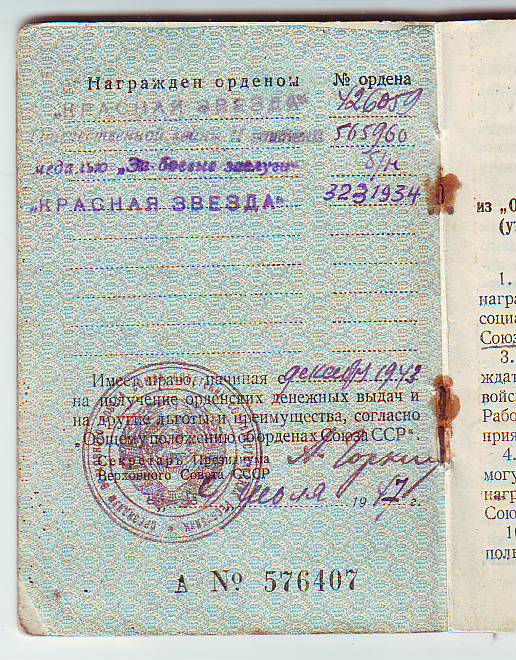 Награжден орденом № ордена
„КРАСНАЯ ЗВЕЗДА" 426059
Отечественной войны II степени 565960
медалью „За боевые заслуги" б/н
„КРАСНАЯ ЗВЕЗДА" 3231934
Имеет право, начиная с декабря 1943
на получение орденских денежных выдач и
на другие льготы и преимущества, согласно
„Общему положению об орденах Союза ССР".
Секретарь Президиума А. Горкин
Верховного Совета СССР
июля 1947 г.
А № 576407
из „О
(у
1.
нагр
социа
Союз
3.
ждат
войс
Рабо
прия
4.
могу
нагр
Сою
10
поль